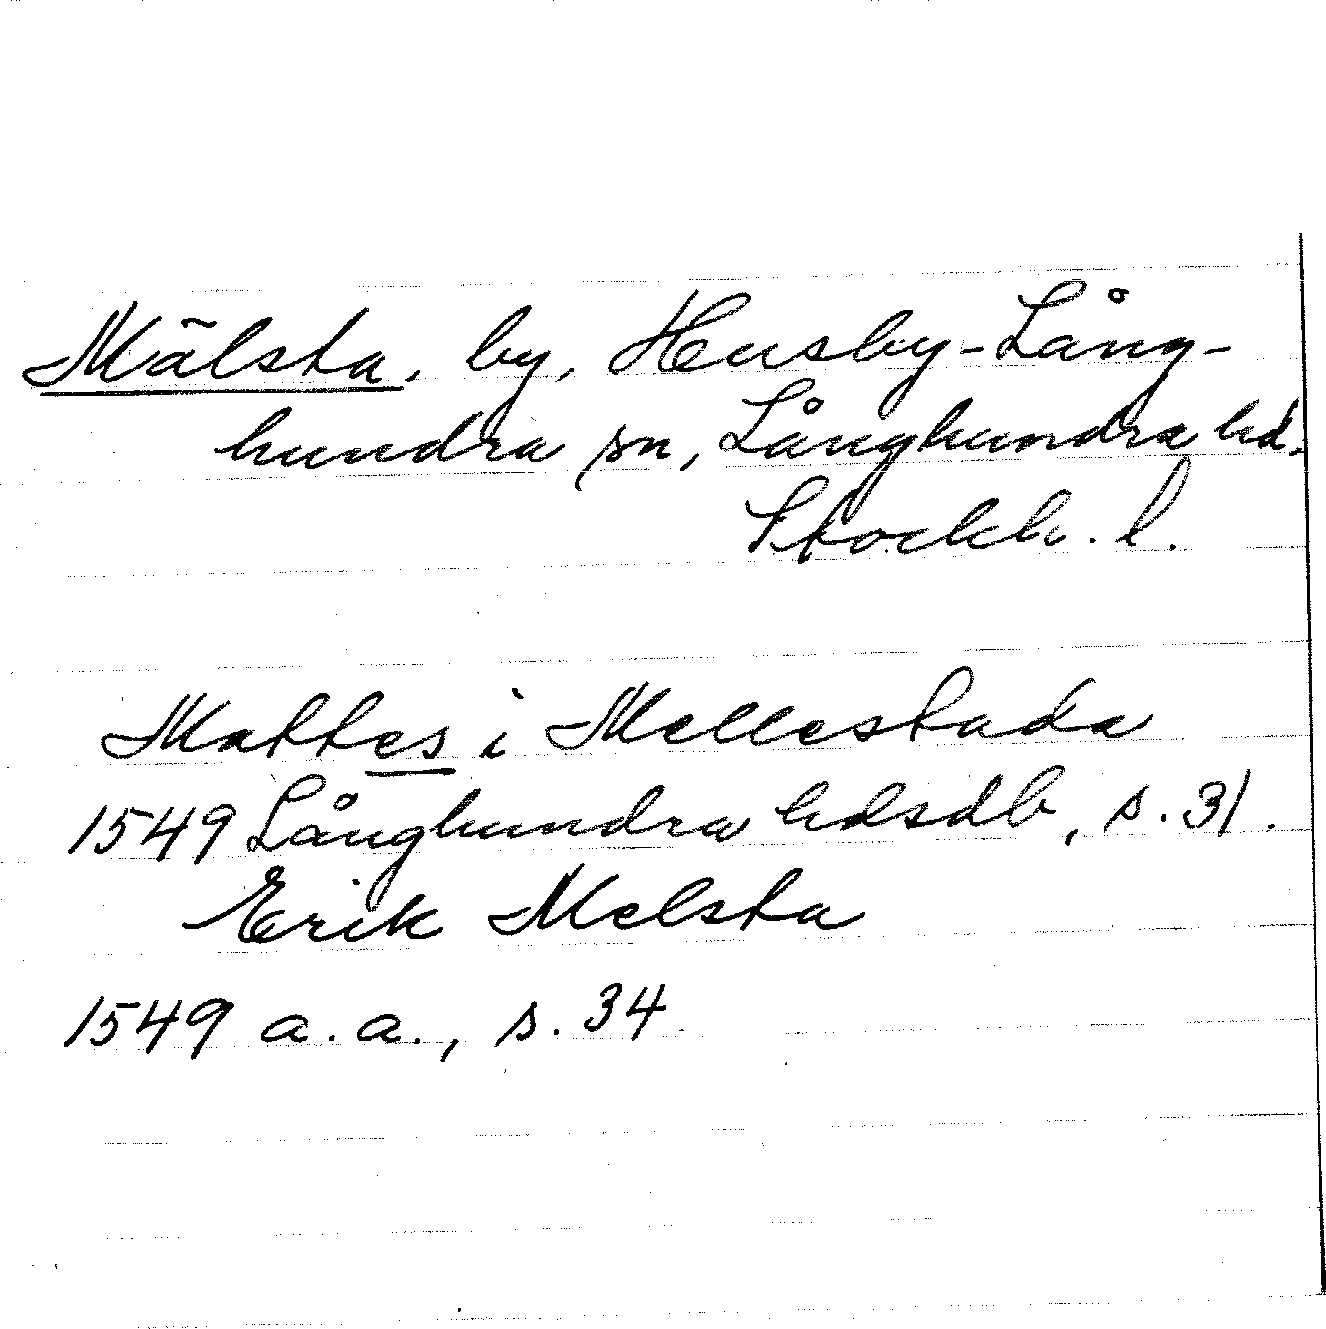 Mälsta, by, Husby-Lång-
hundra sn, Långhundra hd.
Stockh. l.
Mattes i Mellestada
1549 Långhundra hdsdb, s. 31.
Erik Melsta
1549 a.a., s. 34